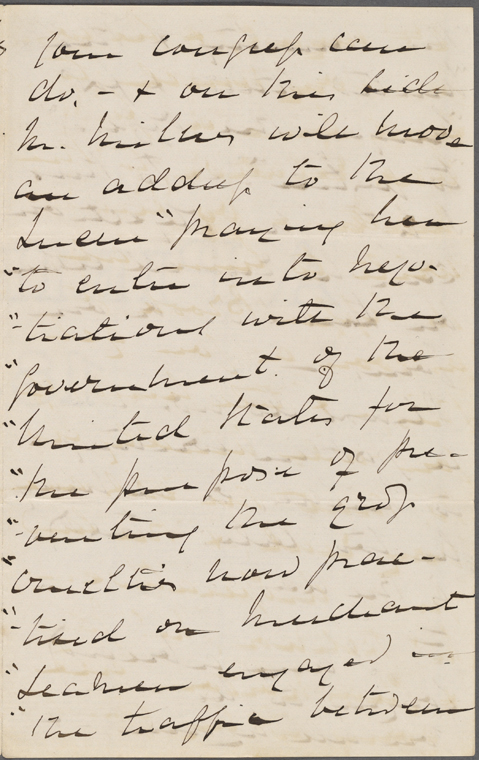 your congress can
do, - & on this side
Mr. Milnes will move
an address to the
Queen "praying her
"to enter into nego-
"tiations with the
"Government of the
"United States for
"the purpose of pre-
"venting the gross
"cruelties now prac-
"tised on merchant
"seamen engaged in
"the traffic between